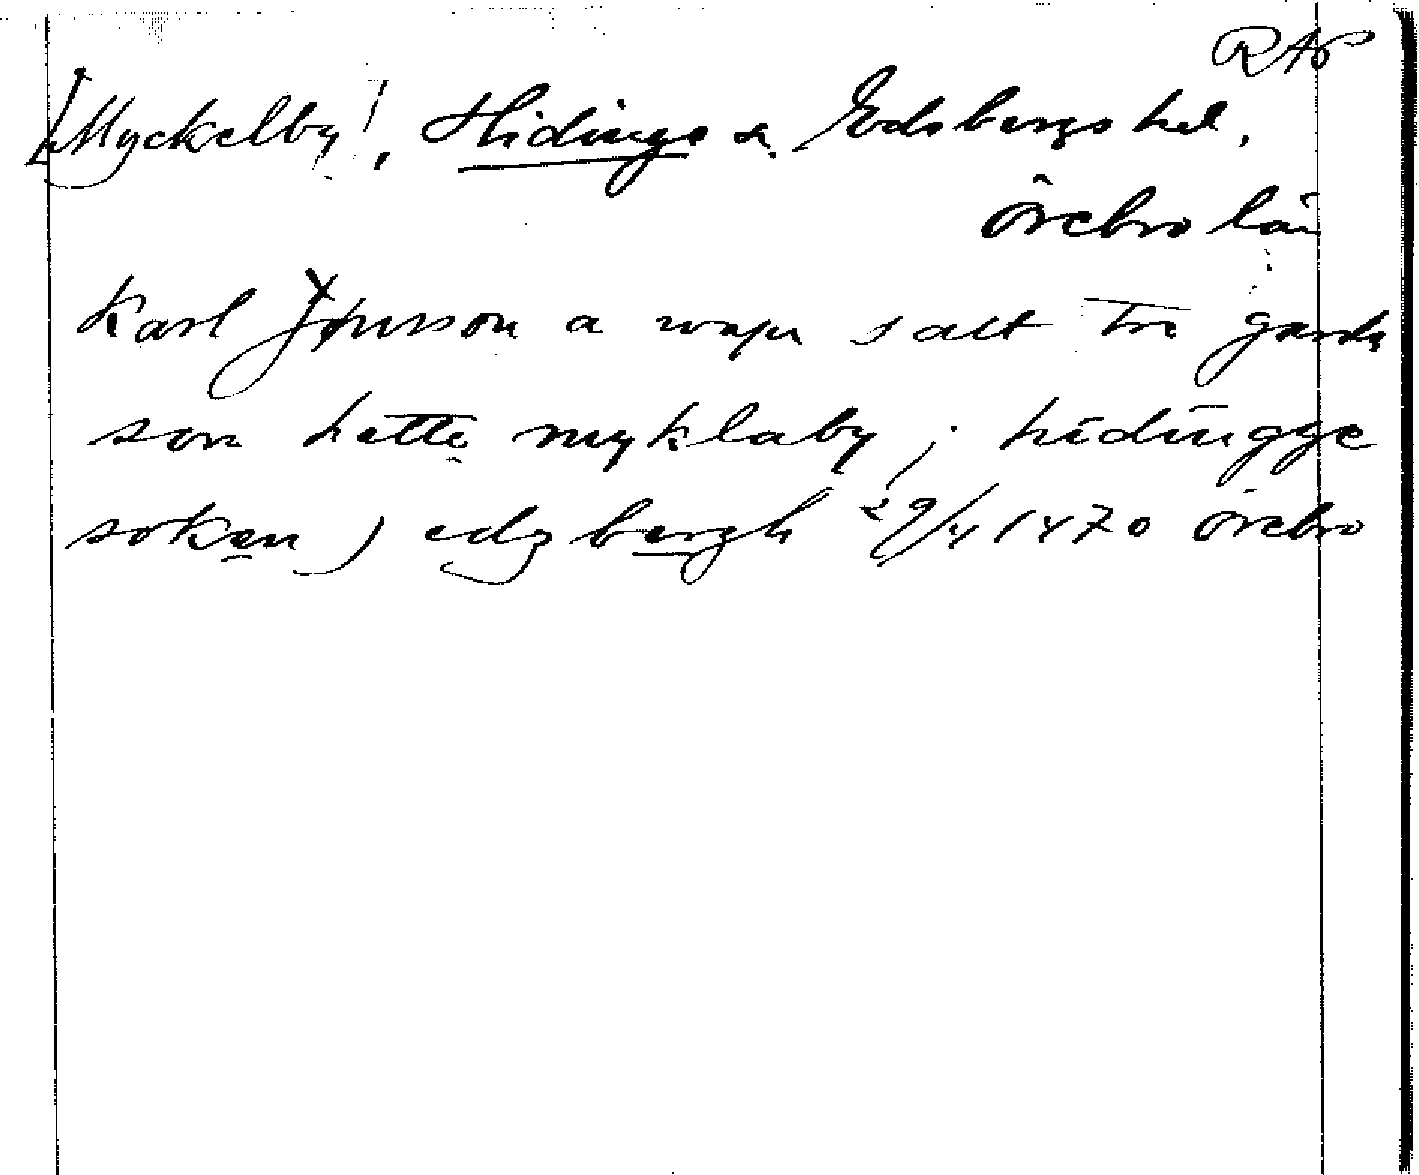 RAP
[Myckelby], Hidinge sn. Edsbergs hd,
Örebro län
Karl Jønsson a wapn satt tre garda
som hette myklaby j hidingge
sokæn j edzbærgh 29/4 1470 Örebro